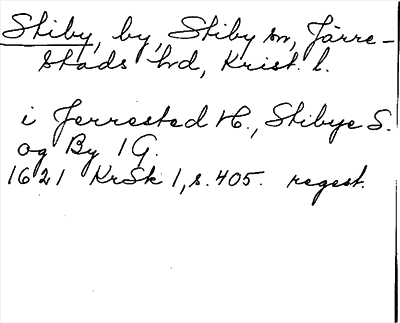 Stiby, by, Stiby sn, Järre-
stads hd, Krist. l.
i Jerrested H., Stibye S.
og By 1 G.
1621 KrSk 1, s. 405. regest.